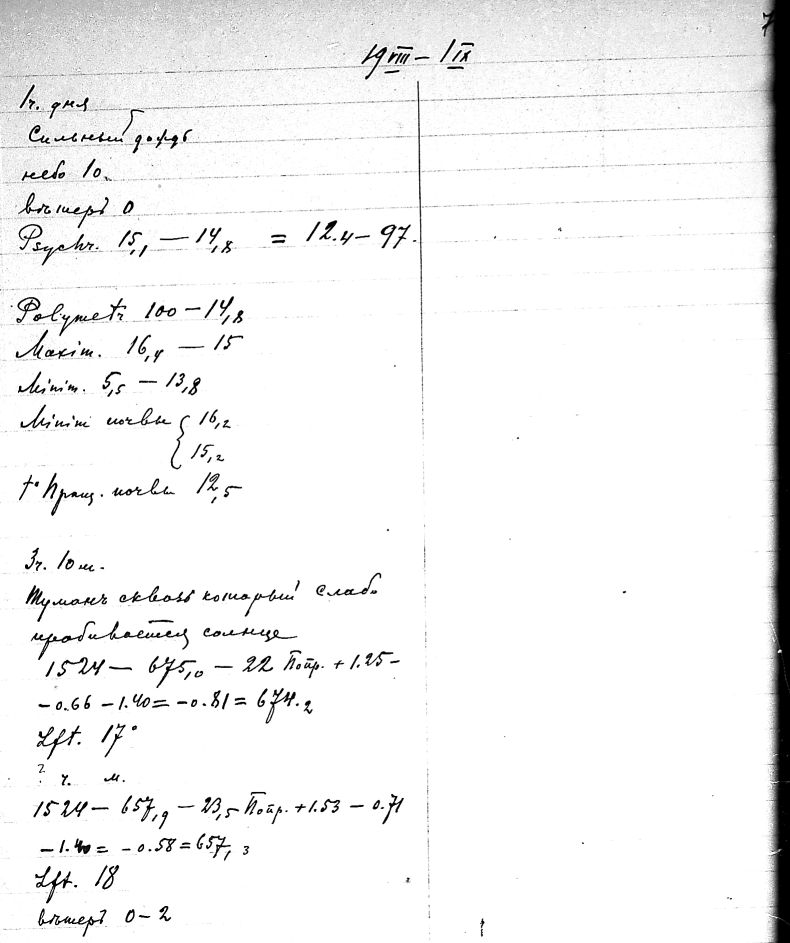 19 VIII – 1 IX
1 ч. дня
Сильный дождь
небо 10.
вѣтеръ 0
Psychr. 15,1 — 14,8 = 12.4 – 97.
Polymetr 100 – 14,8
Maxim. 16,4 — 15
Minim. 5,5 – 13,8
Minim почвы { 16,2
15,2
t° Пращ. почвы 12,5
3 ч. 10 м.
Туманъ сквозь который слабо
пробивается солнце
1524 — 675,0 — 22 Попр. + 1.25 –
– 0.66 – 1.40 = – 0.81 = 674.2
Lft. 17°
? ч. м.
1524 — 657,9 — 23,5 Попр. + 1.53 – 0.71
– 1.40 = – 0.58 = 657,3
Lft. 18
вѣтеръ 0 – 2